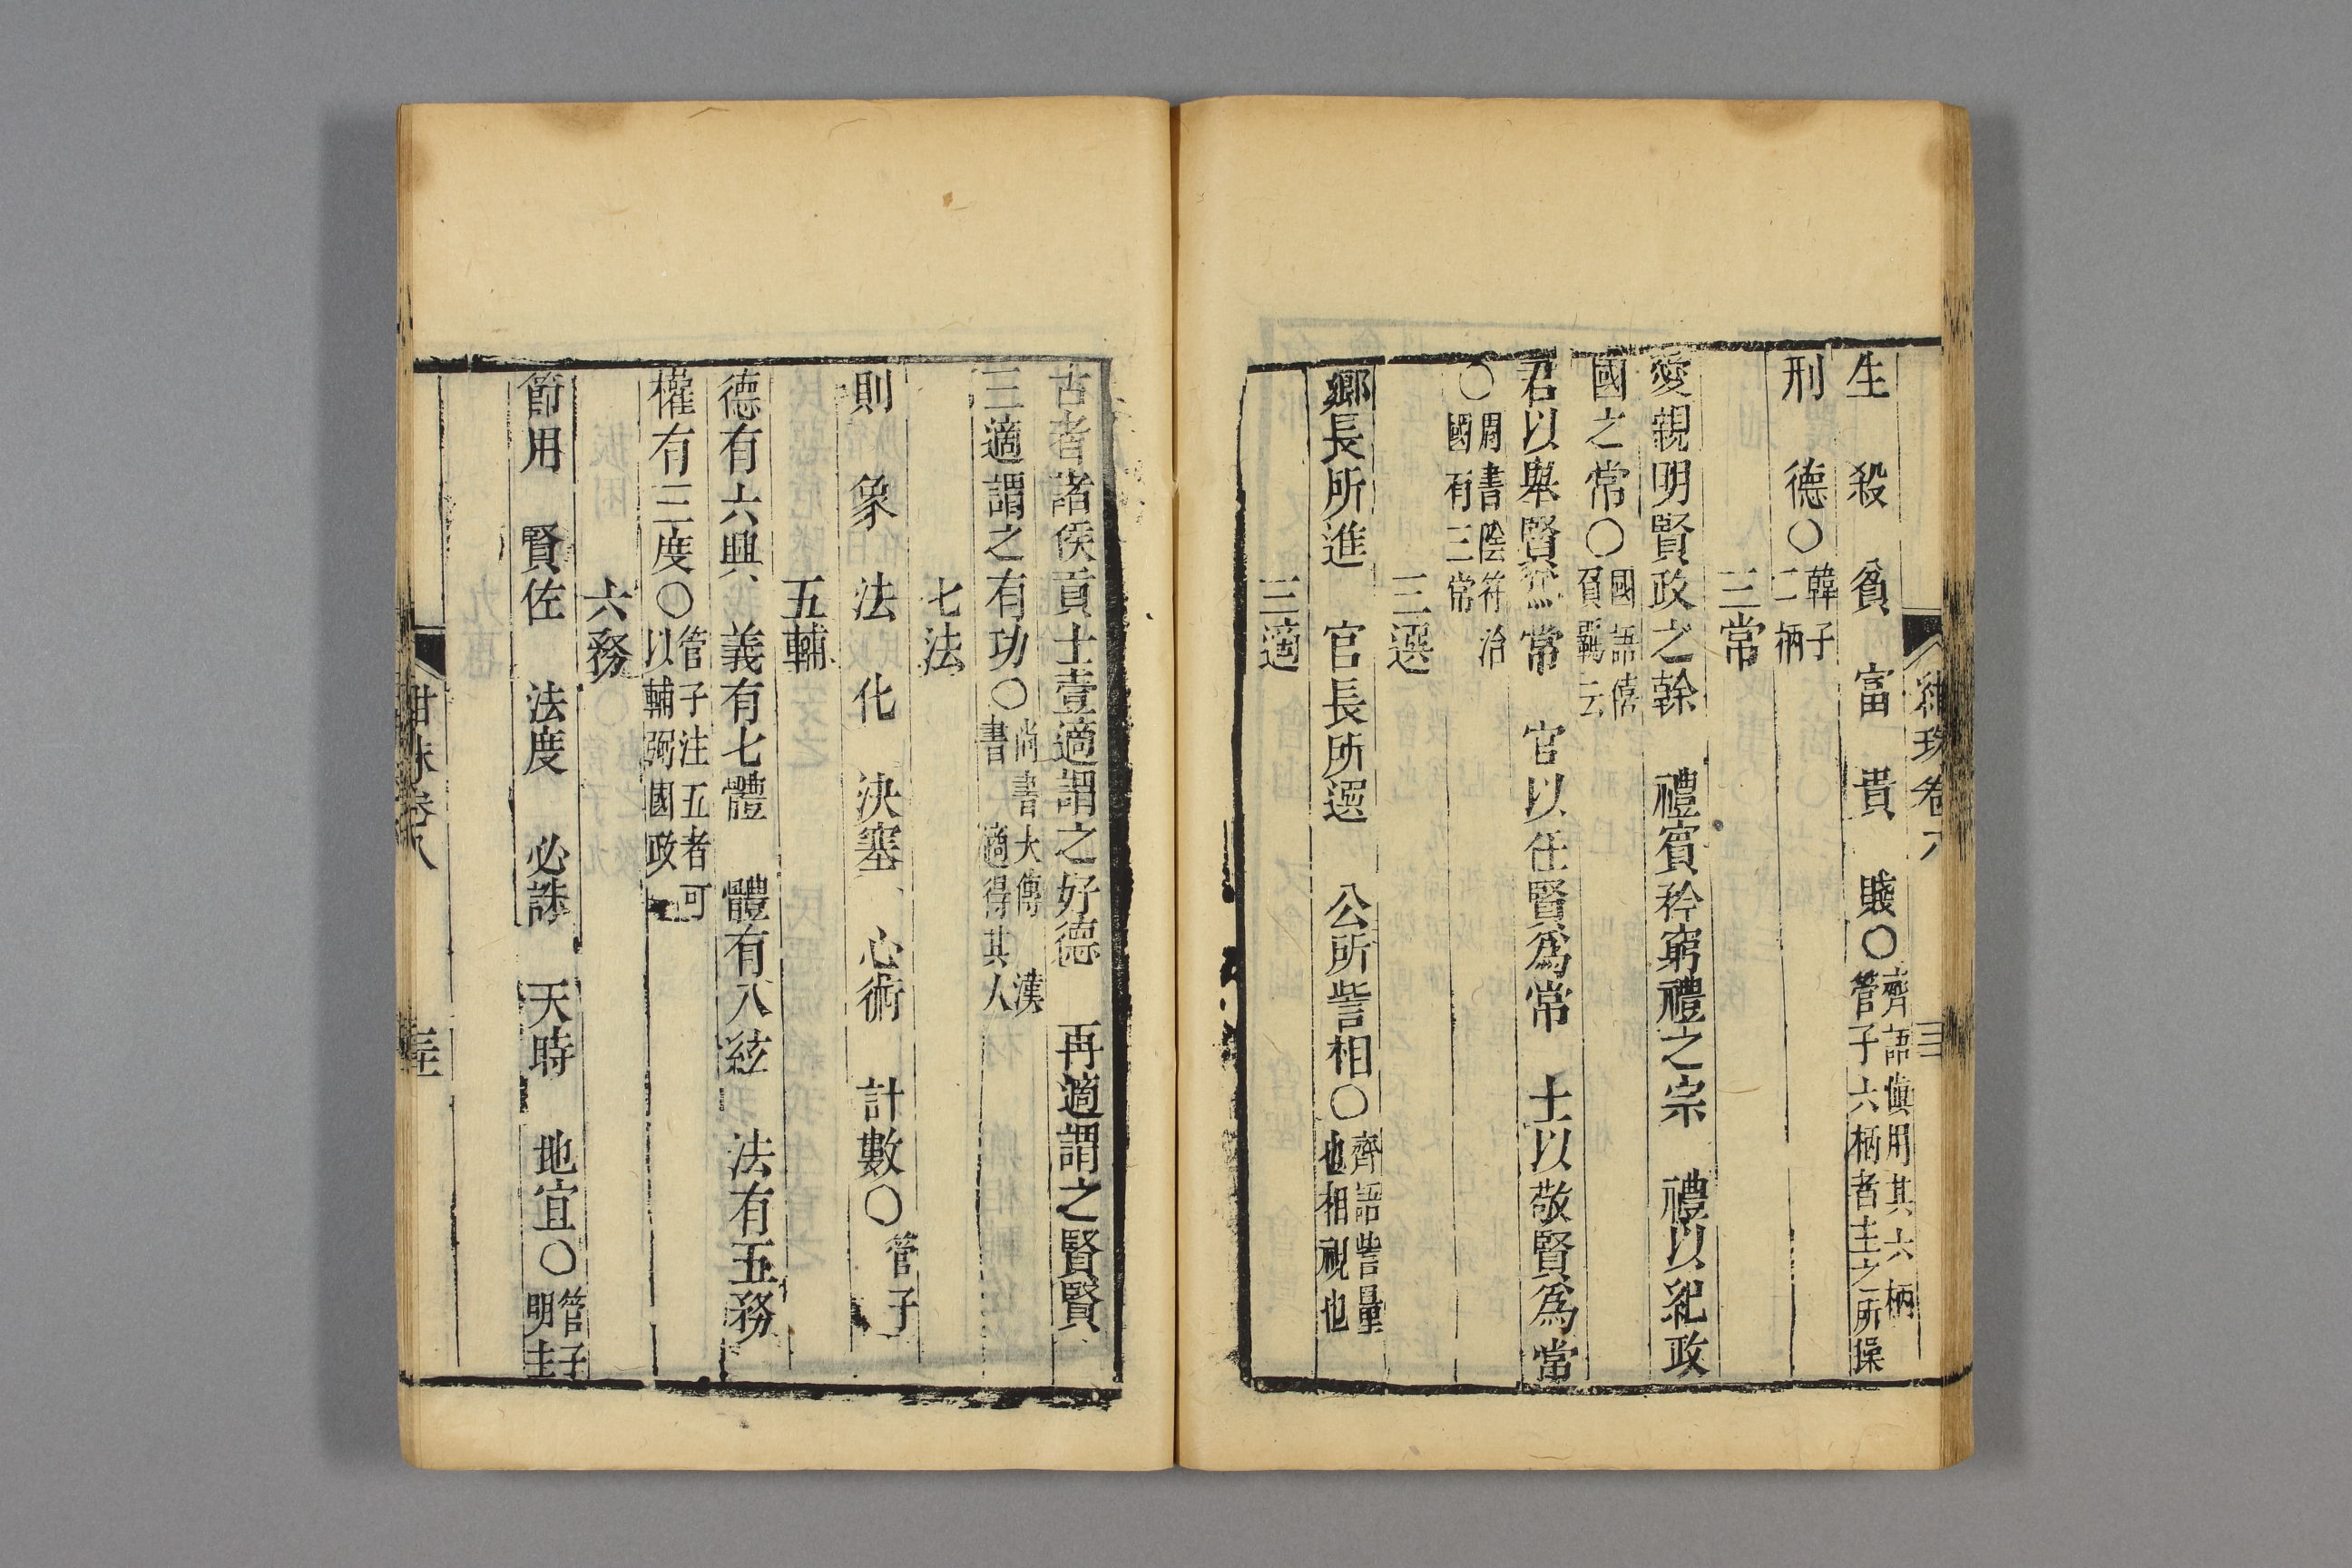 生　殺　貧　富　貴　賤〇齊語慎用其六柄管子六柄者主之所操
刑　德〇韓子二柄
三常
愛親明賢政之幹　禮賓矜窮禮之宗　禮以紀政
國之常〇國語僖負羈云
君以舉賢爲常　官以任賢爲常　士以敬賢爲常
〇周書陰符治國有三常
三選
鄉長所進　官長所選　公所訾相〇齊語訾量也相視也
三適
古者諸侯貢士壹適謂之好德　再適謂之賢賢
三適謂之有功〇尚書大傳　漢書　適得其人
七法
則　象　法　化　決塞　心術　計數〇管子
五輔
德有六興　義有七體　體有八經　法有五務
權有三度〇管子注五者可以輔弼國政
六務
節用　賢佐　法度　必誅　天時　地宜〇管子明主